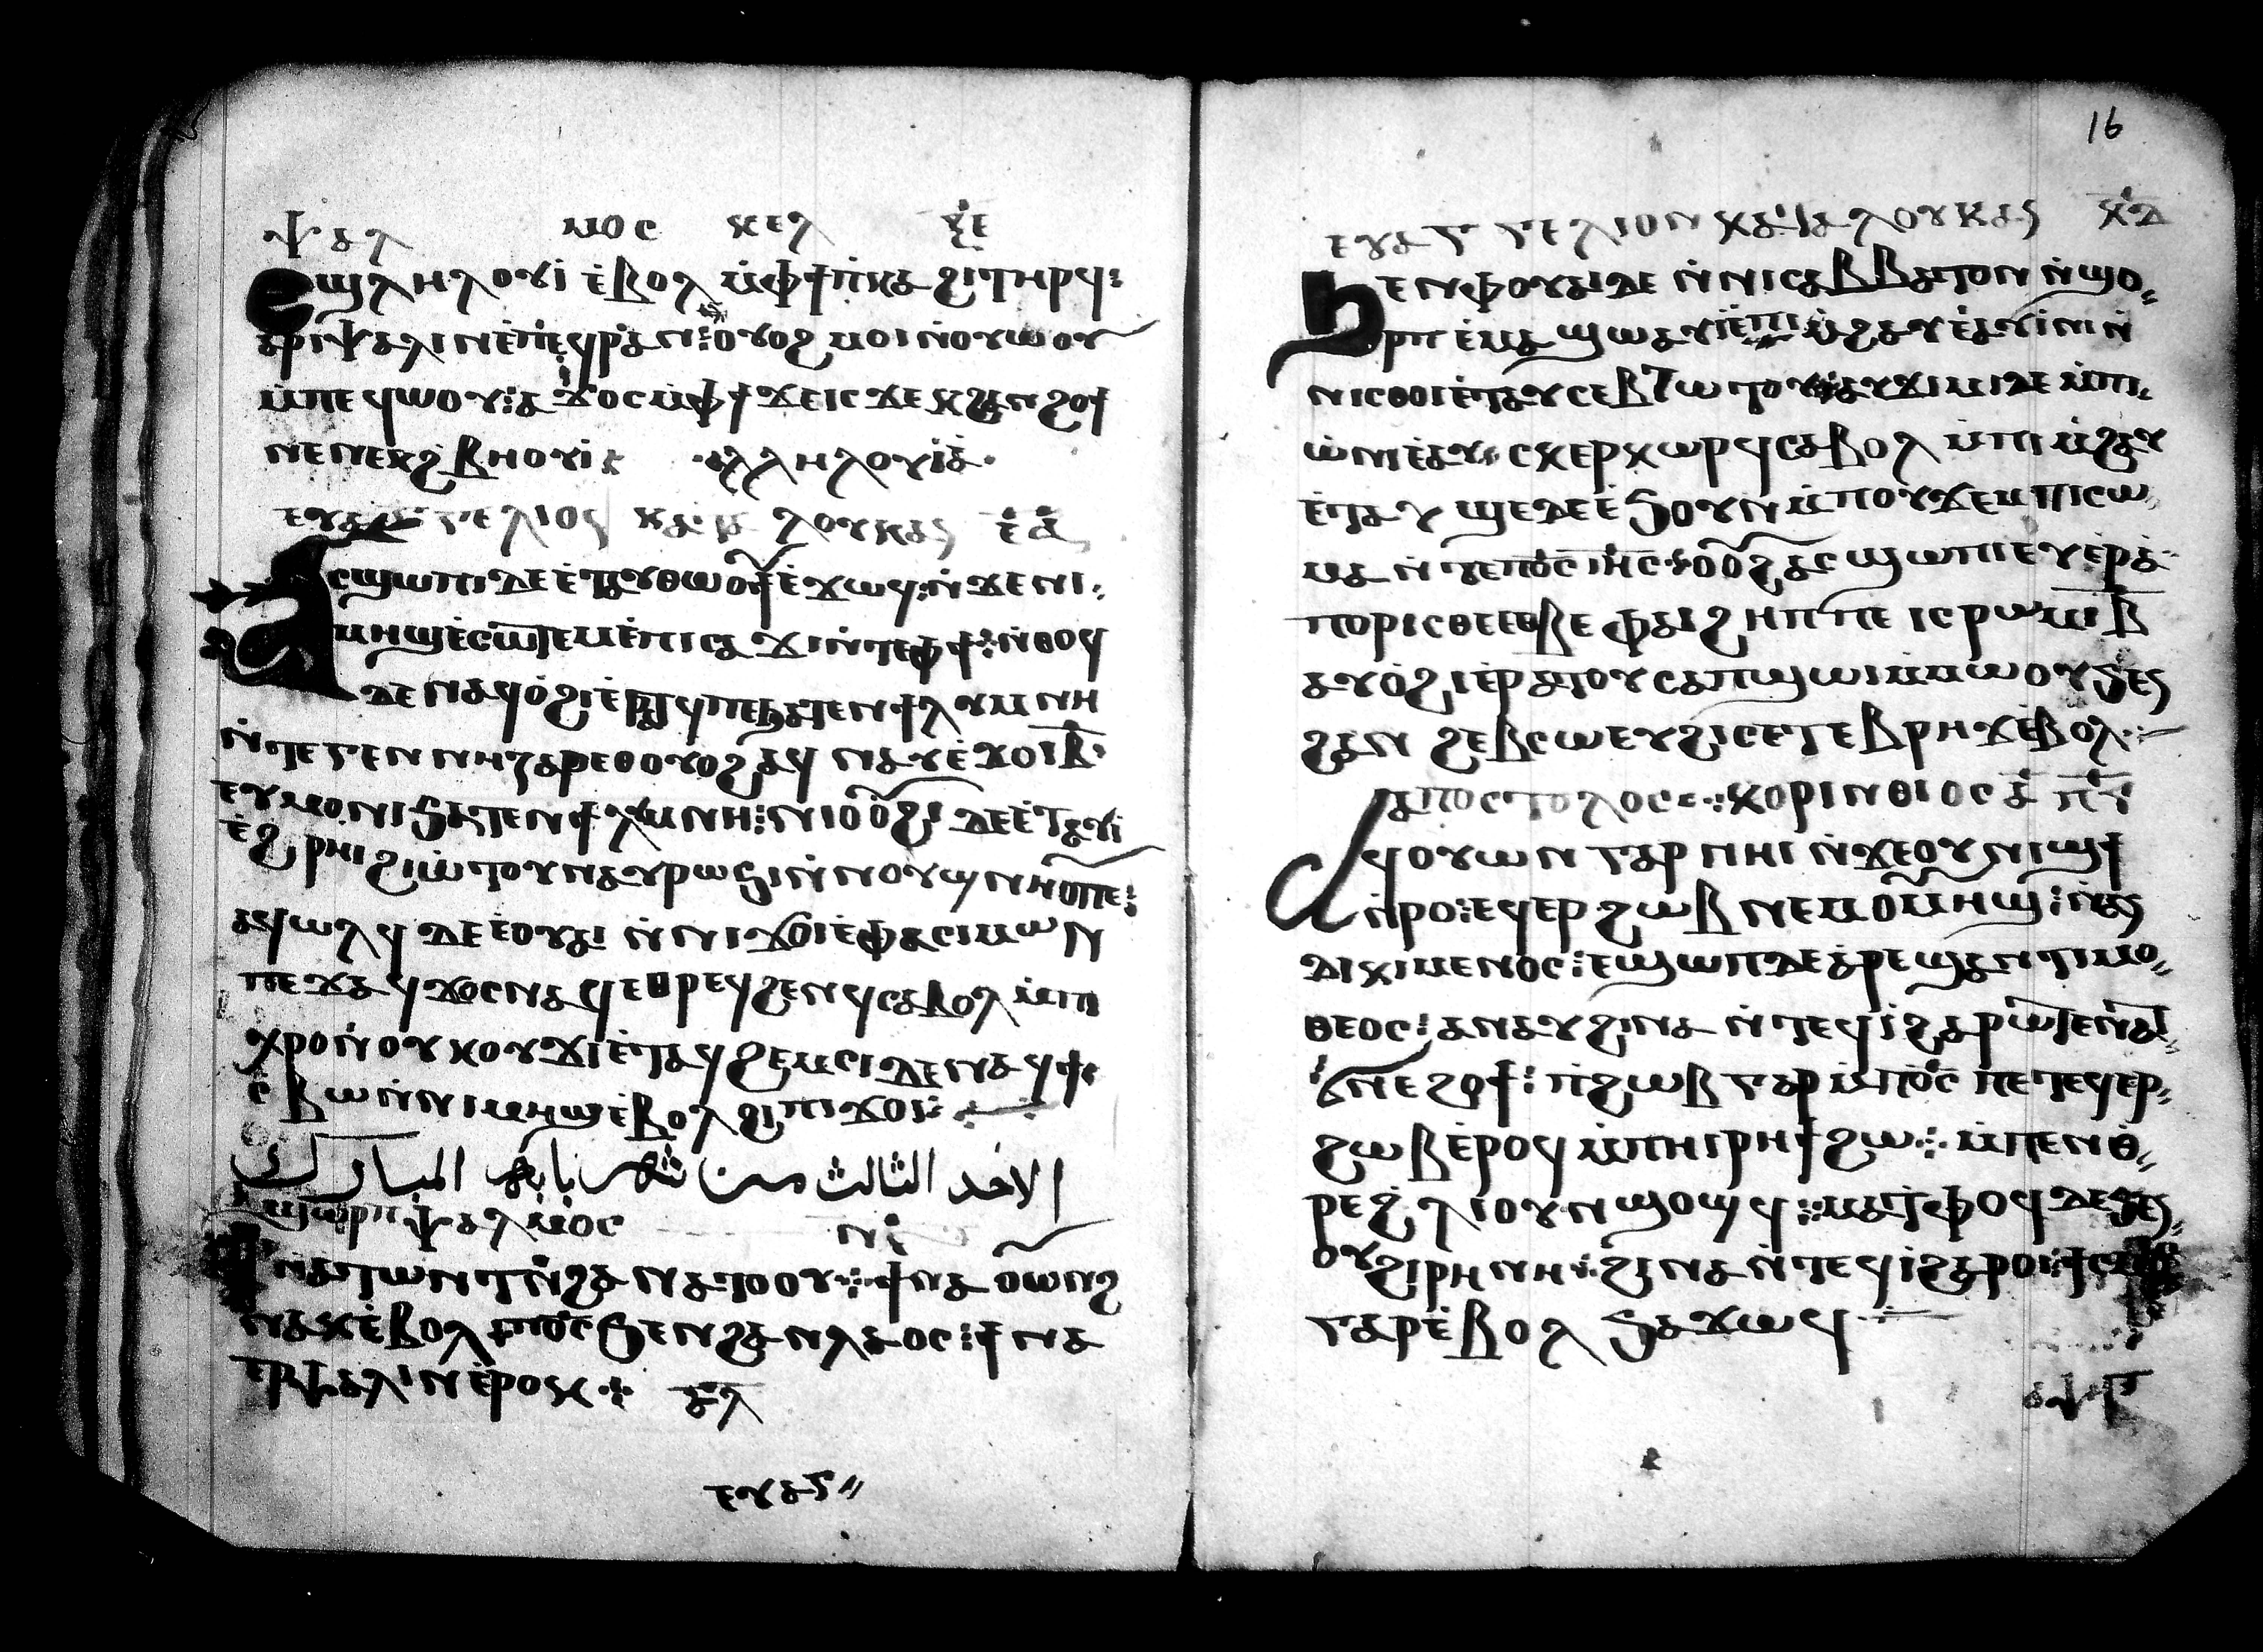 ⲯⲁⲗ ⲙⲟⲥ ⲝⲉ
ⲉϣⲗⲏⲗⲟⲩⲓ̀ ⲉ̀ⲃⲟⲗ ⲙ̀ⲫϯ ⲡ̀ⲕⲁϩⲓ ⲧⲏⲣϥ:
ⲁⲣⲓⲯⲁⲗⲓⲛ ⲉ̀ⲡⲉϥⲣⲁⲛ: ⲟⲩⲟϩ ⲙⲟⲓ ⲛ̀ⲟⲩⲱⲟⲩ
ⲙ̀ⲡⲉϥⲱⲟⲩ: ⲁ̀ϫⲟⲥ ⲙ̀ⲫϯ ϫⲉⲓⲥ ϫⲉ ϩⲁⲛϩⲟϯ
ⲛⲉ ⲛⲉⲕϩⲃⲏⲟⲩⲓ̀ ⲁⲗⲗⲏⲗⲟⲩⲓ̀ⲁ̀
ⲗⲟⲩⲕⲁⲥ ⲉ̅ ⲁ̅
ⲁⲥϣⲱⲡⲓ ⲇⲉ ⲉ̀ⲧⲁⲩⲑⲱⲟⲩϯ ⲉ̀ϫⲱϥ: ⲛ̀ϫⲉ ⲛⲓ
ⲙⲏϣ ⲉ̀ⲥⲱⲧⲉⲙ ⲉ̀ⲡⲓⲥⲁϫⲓ ⲛ̀ⲧⲉ ⲫϯ: ⲛ̀ⲑⲟϥ
ⲇⲉ ⲛⲁϥⲟ̀ϩⲓ ⲉ̀ⲣⲁⲧϥ ⲡⲉ ϧⲁⲧⲉⲛ ϯⲗⲩⲙⲛⲏ
ⲛ̀ⲧⲉ ⲅⲉⲛⲛⲏⲍⲁⲣⲉⲑ ⲟⲩⲟϩ ⲛⲁⲩ ⲉ̀ϫⲟⲓ ⲃ̅
ⲉⲩⲙⲟⲛⲓ ϧⲁⲧⲉⲛ ϯⲗⲩⲙⲛⲏ: ⲛⲓⲟⲩⲟ̀ϩⲓ ⲇⲉ ⲉ̀ⲧⲁⲩⲓ̀
ⲉ̀ϩⲣⲏⲓ ϩⲓⲱ̀ⲧⲟⲩ ⲛⲁⲩⲣⲱϧⲓ ⲛ̀ⲛⲟⲩϣⲛⲏⲟⲩ ⲡⲉ:
ⲁϥⲱⲗϥ ⲇⲉ ⲉ̀ⲟⲩⲁⲓ ⲛ̀ⲛⲓϫⲟⲓ ⲉ̀ⲫⲁ ⲥⲓⲙⲱⲛ
ⲡⲉ ϫⲁϥϫⲟⲥ ⲛⲁϥ ⲉⲑⲣⲉϥϩⲉⲛϥ ⲥⲁⲃⲟⲗ ⲙ̀ⲡⲓ
ⲭⲣⲟ ⲛ̀ⲟⲩⲕⲟⲩϫⲓ ⲉ̀ⲧⲁϥϩⲉⲙⲥⲓ ⲇⲉ ⲛⲁϥϯ
ⲥⲃⲱ ⲛ̀ⲛⲓⲙⲏϣ ⲉ̀ⲃⲟⲗ ϩⲓ ⲡⲓϫⲟⲓ:
الاحد الثالث من شهر بابه المبارك
ϣⲱⲣⲡ ⲯⲁⲗⲙⲟⲥ ⲛ̅
ϯⲛⲁⲧⲱⲛⲧ ⲛ̀ϩⲁⲛⲁⲧⲟⲟⲩⲓ̀: ϯⲛⲁⲟⲩⲱⲛϩ
ⲛⲁⲕ ⲉ̀ⲃⲟⲗ ⲡⲟ̅ⲥ̅ ϧⲉⲛ ϩⲁⲛⲗⲁⲟⲥ: ϯⲛⲁ
ⲉⲣⲯⲁⲗⲓⲛ ⲉ̀ⲣⲟⲕ: ⲁ̅ⲗ̅
ⲉⲩⲁⲅ
16
ⲉⲩⲁⲅⲅⲉⲗⲓⲟⲛ ⲕⲁⲧⲁ ⲗⲟⲩⲕⲁⲥ ⲕ̅ⲇ̅
ϧⲉⲛ ⲫⲟⲩⲁⲓ ⲇⲉ ⲛ̀ⲛⲓⲥⲁⲃⲃⲁⲧⲟⲛ ⲛ̀ϣⲟ
ⲣⲡ ⲉ̀ⲙⲁϣⲱ ⲁⲩⲓ̀ ⲉ̀ⲡⲓⲙ̀ϩⲁⲩ ⲉ̀ⲁⲩⲓ̀ⲛⲓ ⲛ̀
ⲛⲓⲥⲑⲟⲓ ⲉ̀ⲧⲁⲩⲥⲉⲃⲧⲱⲧⲟⲩ ⲁⲩϫⲓⲙⲓ ⲇⲉ ⲙ̀ⲡⲓ
ⲱ̀ⲛⲓ ⲉ̀ⲁⲩⲥⲕⲉⲣⲕⲱⲣϥ ⲥⲁⲃⲟⲗ ⲙ̀ⲡⲓⲙ̀ϩⲁⲩ
ⲉ̀ⲧⲁⲩϣⲉ ⲇⲉ ⲉ̀ϧⲟⲩⲛ ⲙ̀ⲡⲟⲩϫⲉⲙ ⲡⲓⲥⲱ
ⲙⲁ ⲛ̀ⲧⲉ ⲡⲟ̅ⲥ̅ ⲓⲏ̅ⲥ̅: ⲟⲩⲟϩ ⲁⲥϣⲱⲡⲓ ⲉⲩⲉⲣⲁ̀
ⲡⲟⲣⲓⲥⲑⲉ ⲉⲑⲃⲉ ⲫⲁⲓ ϩⲏⲡⲡⲉ ⲓⲥ ⲣⲱⲙⲓ ⲃ̅
ⲁⲩⲟ̀ϩⲓ ⲉ̀ⲣⲁⲧⲟⲩ ⲥⲁⲡϣⲱⲓ ⲙ̀ⲙⲱⲟⲩ ϧⲉⲛ
ϩⲁⲛ ϩⲉⲃⲥⲱ ⲉⲩϩⲓⲥⲉⲧⲉⲃⲣⲏϫ ⲉ̀ⲃⲟⲗ
ⲁⲡⲟⲥⲧⲟⲗⲟⲥ: ⲕⲟⲣⲓⲛⲑⲓⲟⲥ ⲁ̅
ⲁϥⲟⲩⲱⲛ ⲅⲁⲣ ⲛⲏⲓ ⲛ̀ϫⲉ ⲟⲩⲛⲓϣϯ
ⲛ̀ⲣⲟ: ⲉϥⲉⲣϩⲱⲃ ⲛⲉⲙ ⲟⲩⲙⲏϣ: ⲛ̀ⲁⲛ
ⲇⲓⲕⲓⲙⲉⲛⲟⲥ: ⲉϣⲱⲡ ⲇⲉ ⲁⲣⲉϣⲁⲛ ⲧⲓⲙⲟ
ⲑⲉⲟⲥ: ⲁⲛⲁⲩ ϩⲓⲛⲁ ⲛ̀ⲧⲉϥⲓ̀ ϩⲁⲣⲱⲧⲉⲛ ⲁ̀
ϭⲛⲉ ϩⲟϯ: ⲡ̀ϩⲱⲃ ⲅⲁⲣ ⲙ̀ⲡⲟ̅ⲥ̅ ⲡⲉⲧⲉϥⲉⲣ
ϩⲱⲃ ⲉ̀ⲣⲟϥ ⲙ̀ⲡⲓⲣⲏϯ ϩⲱ: ⲙ̀ⲡⲉⲛⲑ
ⲣⲉ ϩ̀ⲗⲓ ⲟⲩⲛ ϣⲟϣϥ: ⲙⲁⲧⲫⲟϥ ⲇⲉ ϧⲉⲛ
ⲟⲩϩⲓⲣⲏⲛⲏ: ϩⲓⲛⲁ ⲛ̀ⲧⲉϥⲓ̀ ϩⲁⲣⲟⲓ
ⲅⲁⲣ ⲉ̀ⲃⲟⲗ ϧⲁϫⲱϥ